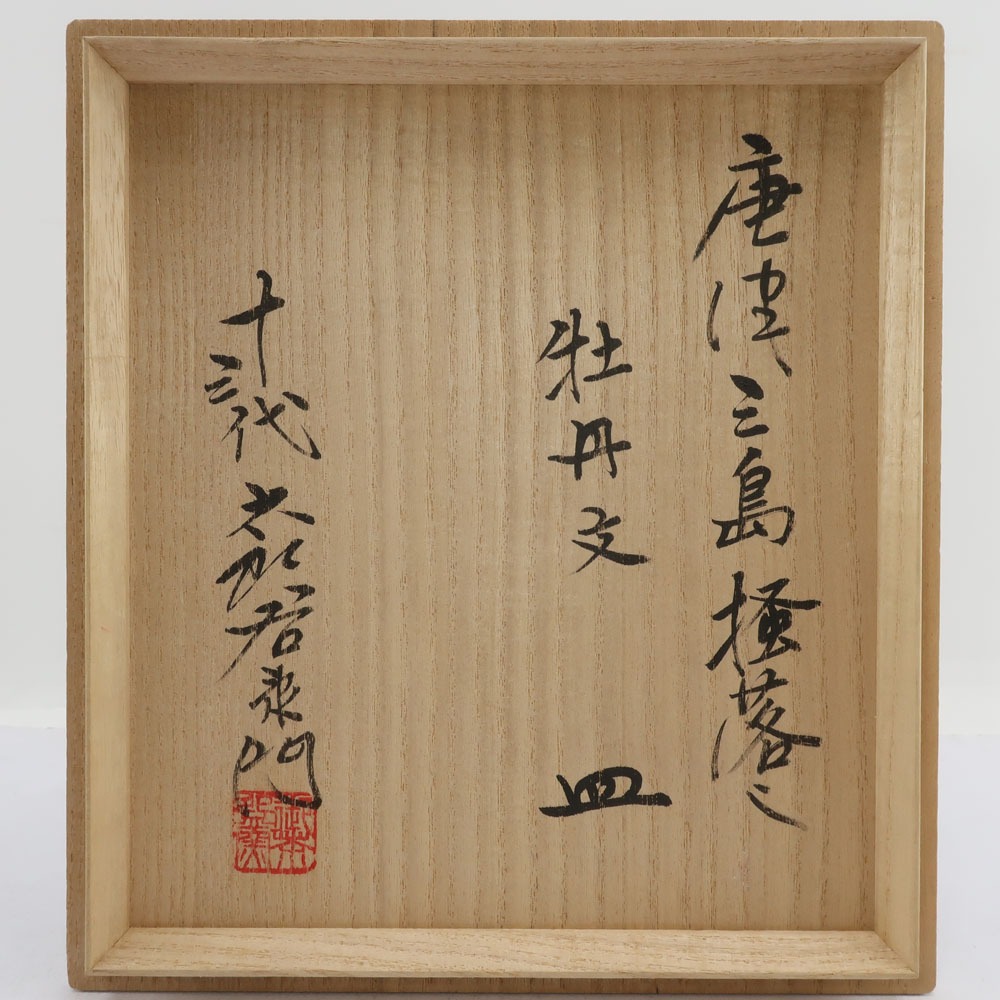 唐津三島掻落し
牡丹文　皿
十三代太郎右衛門